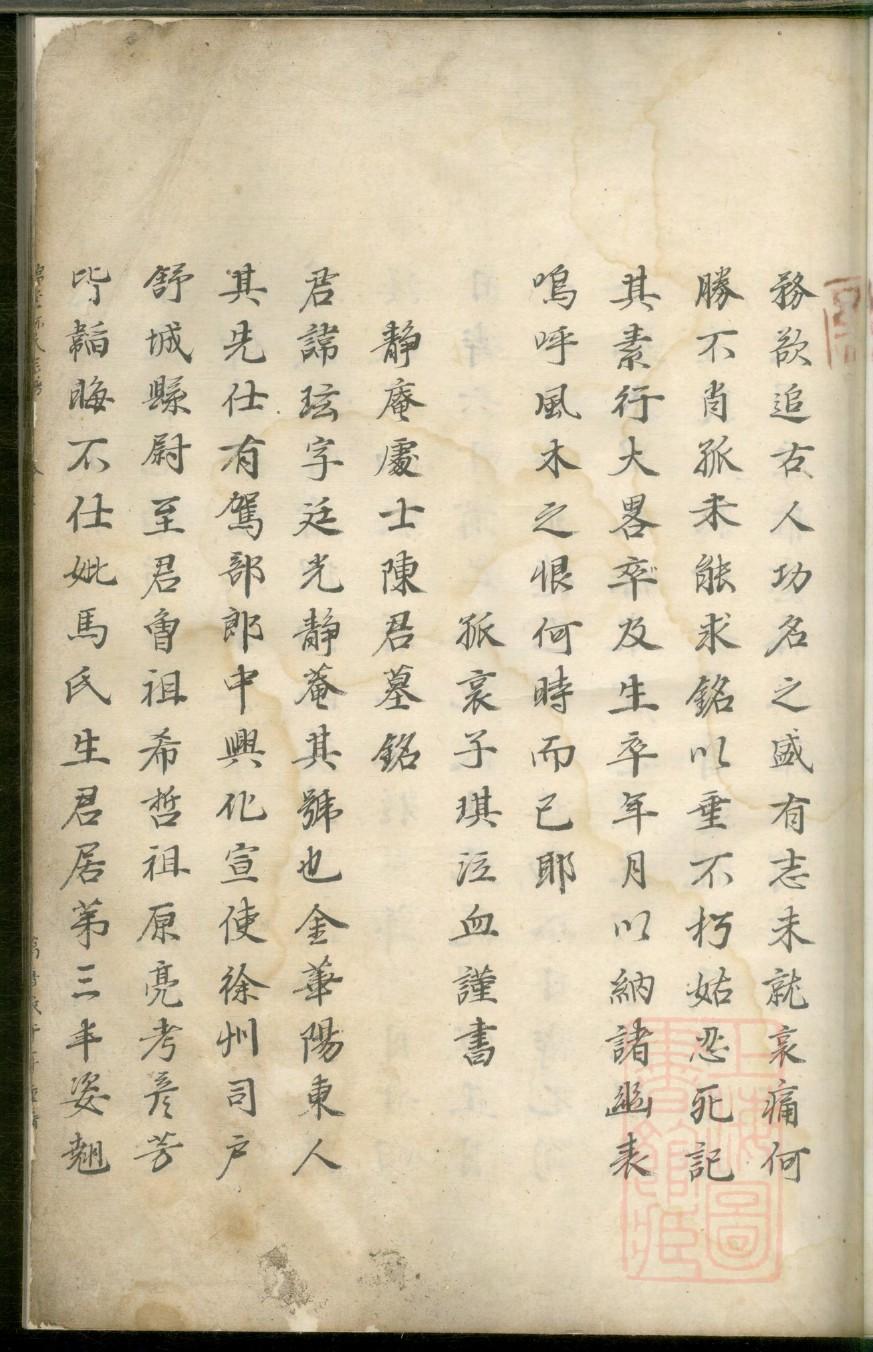 務欲追古人功名之盛有志未就哀痛何
勝不肖孤未能求銘以垂不朽姑忍死記
其素行大畧卒及生卒年月以納諸幽表
嗚呼風木之恨何時而已耶
孤哀子琪泣血謹書
靜庵處士陳君墓銘
君諱玹字廷光靜菴其號也金華陽東人
其先仕有駕部郎中興化宣使徐州司戶
舒城縣尉至君曾祖希哲祖原亮考彥芳
皆韜晦不仕妣馬氏生君居第三丰姿翹
上海圖書館藏